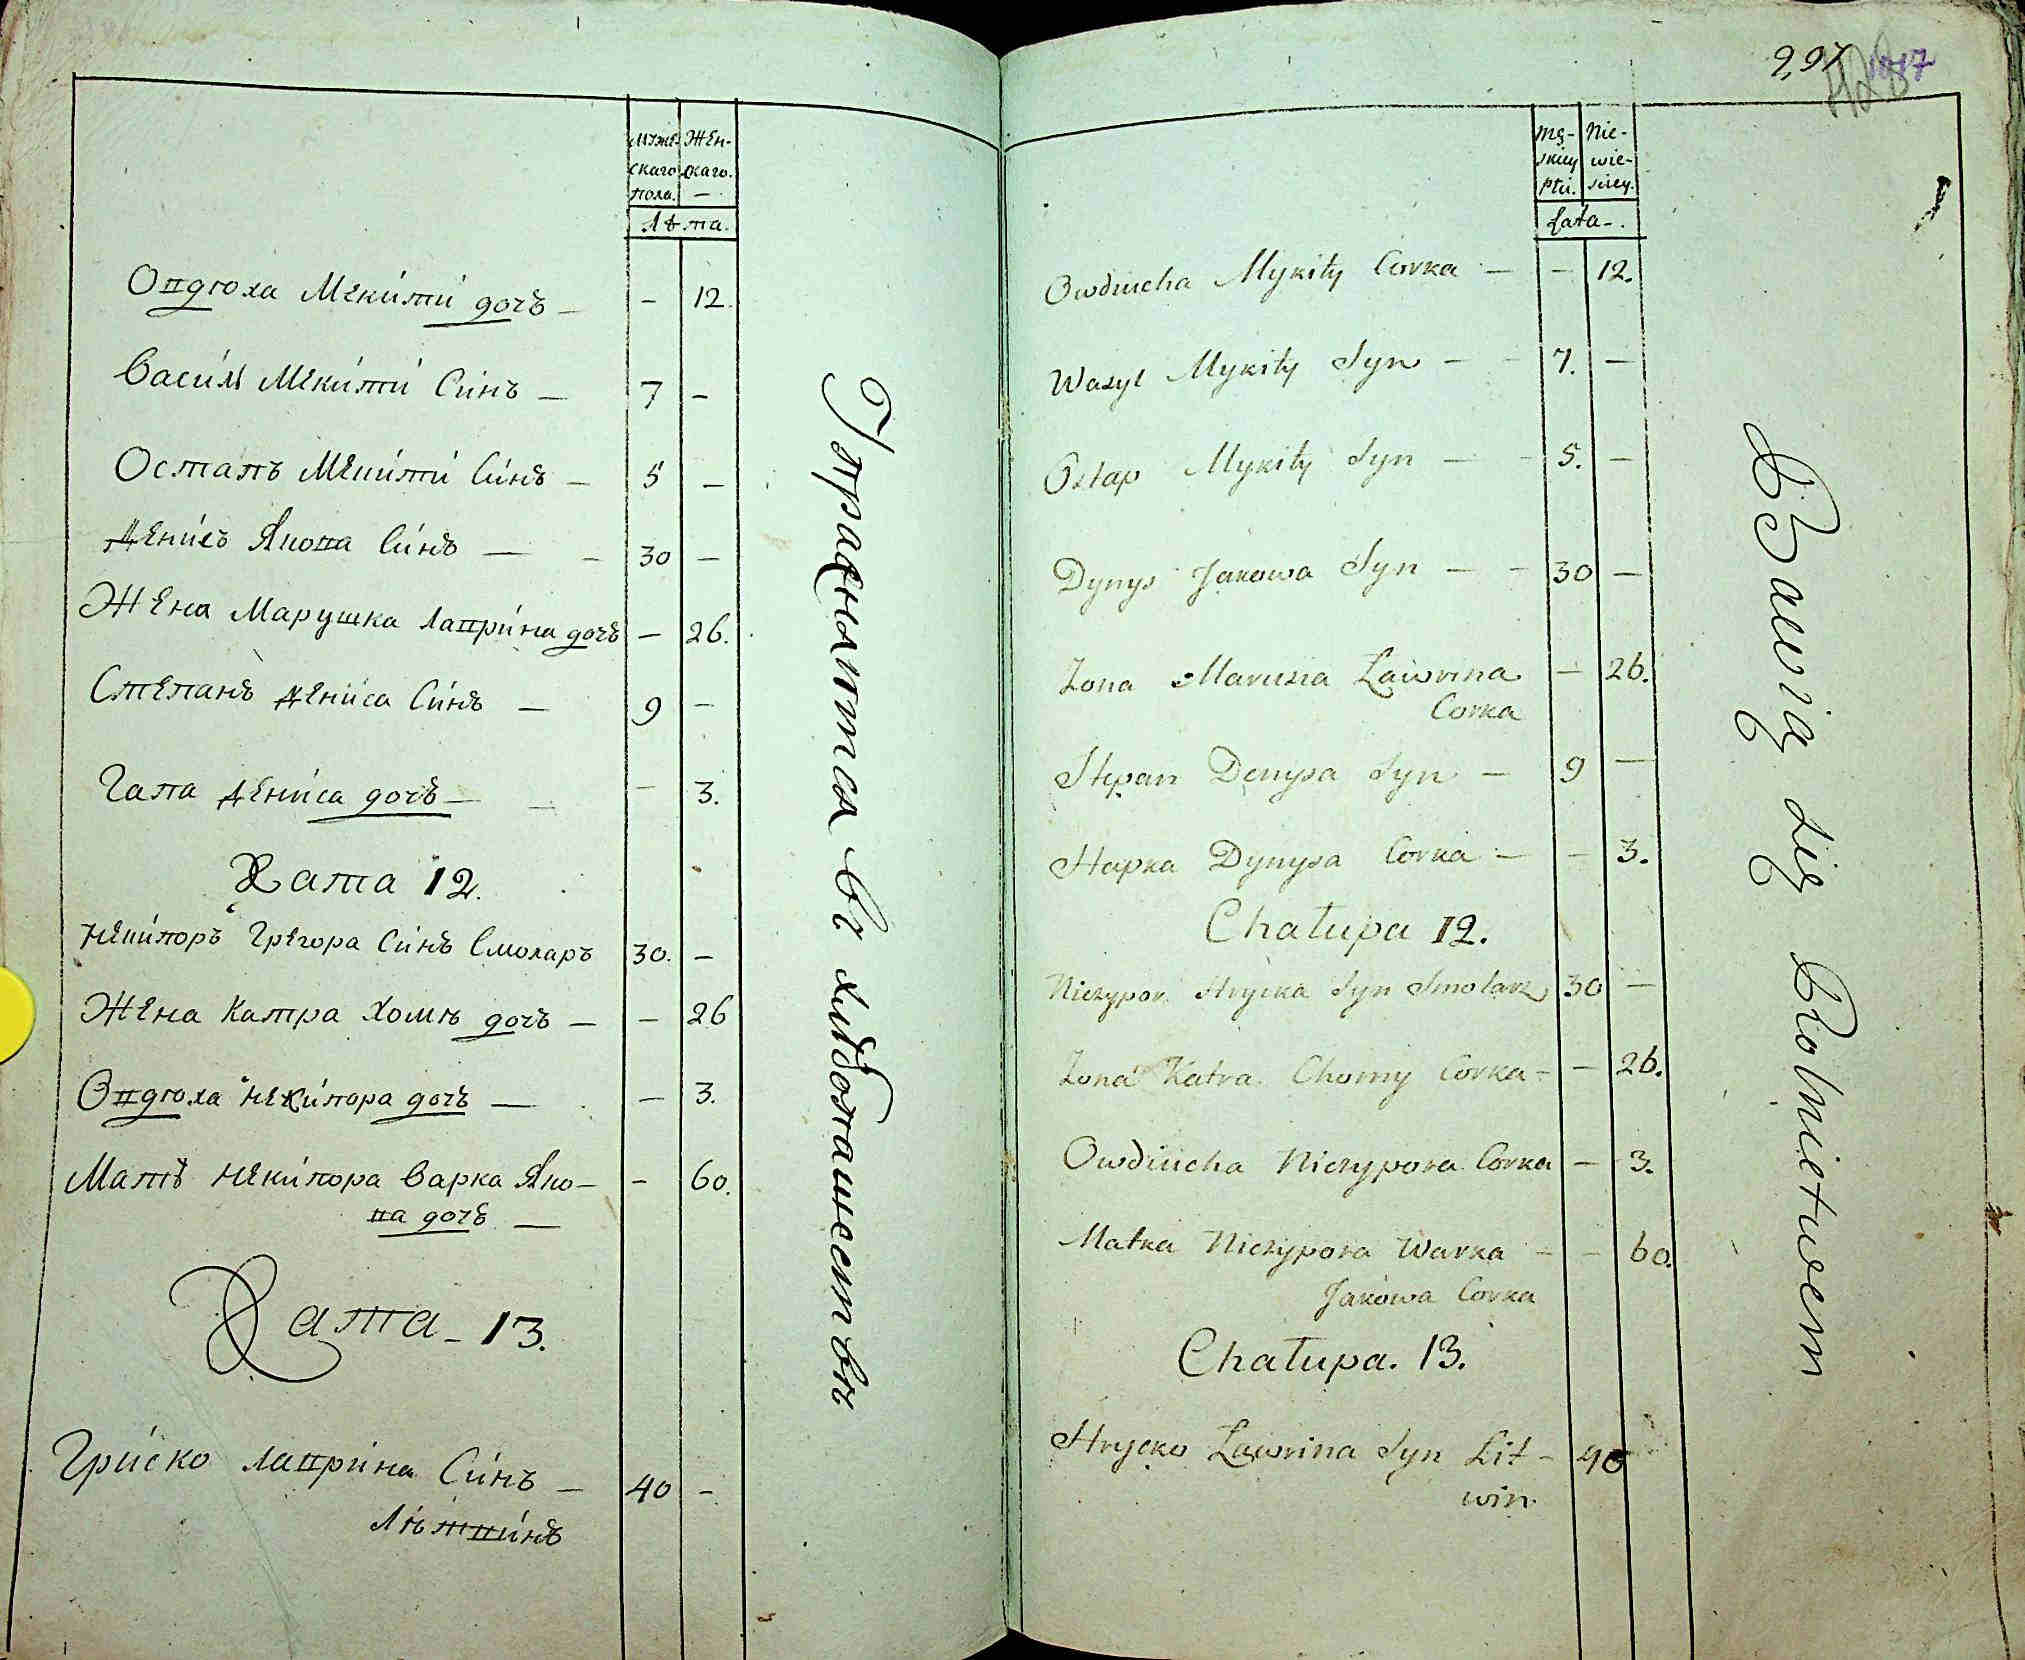 Муже- Жен-
скаго скаго.
пола. —
Лѣта.
Овдюха Мекити дочь — — 12.
Василь Мекити Синъ — 7 —
Остапъ Мекити Синъ — 5 —
Денисъ Якова Синъ — — 30 —
Жена Марушка Лаврина дочь — 26.
Степанъ Дениса Синъ — 9 —
Гапа Дениса дочь — — — 3.
Хата 12.
Некипоръ Грегора Синъ Смоляръ 30. —
Жена Катра Хомы дочь — — 26
Овдюха Некипора дочь — — 3.
Мать Некипора Варка Яко- — 60.
ва дочь —
Хата - 13.
Гриско Лаврина Синъ — 40 —
Литвинъ
Упражняются въ хлибопашестви
297
1017
428
Mę- Nie-
skiey wie-
płci. sciey.
Łata -.
Owdiucha Mykity Corka — — 12.
Wasyl Mykity Syn — — 7. —
Ostap Mykity Syn — — 5. —
Dynys Jakowa Syn — — 30 —
Zona Marusia Ławrina — 26.
Corka
Stepan Denysa Syn — 9 —
Hapka Dynysa Corka — — 3.
Chałupa 12.
Niczypor Hrycka Syn Smolarz 30 —
Zona Katra Chomy Corka — — 26.
Owdiucha Niczypora Corka — 3.
Matka Niczypora Warka — — 60.
Jakowa Corka
Chałupa. 13.
Hrycko Ławrina Syn Lit- 40
win.
Bawią się Rolnictwem